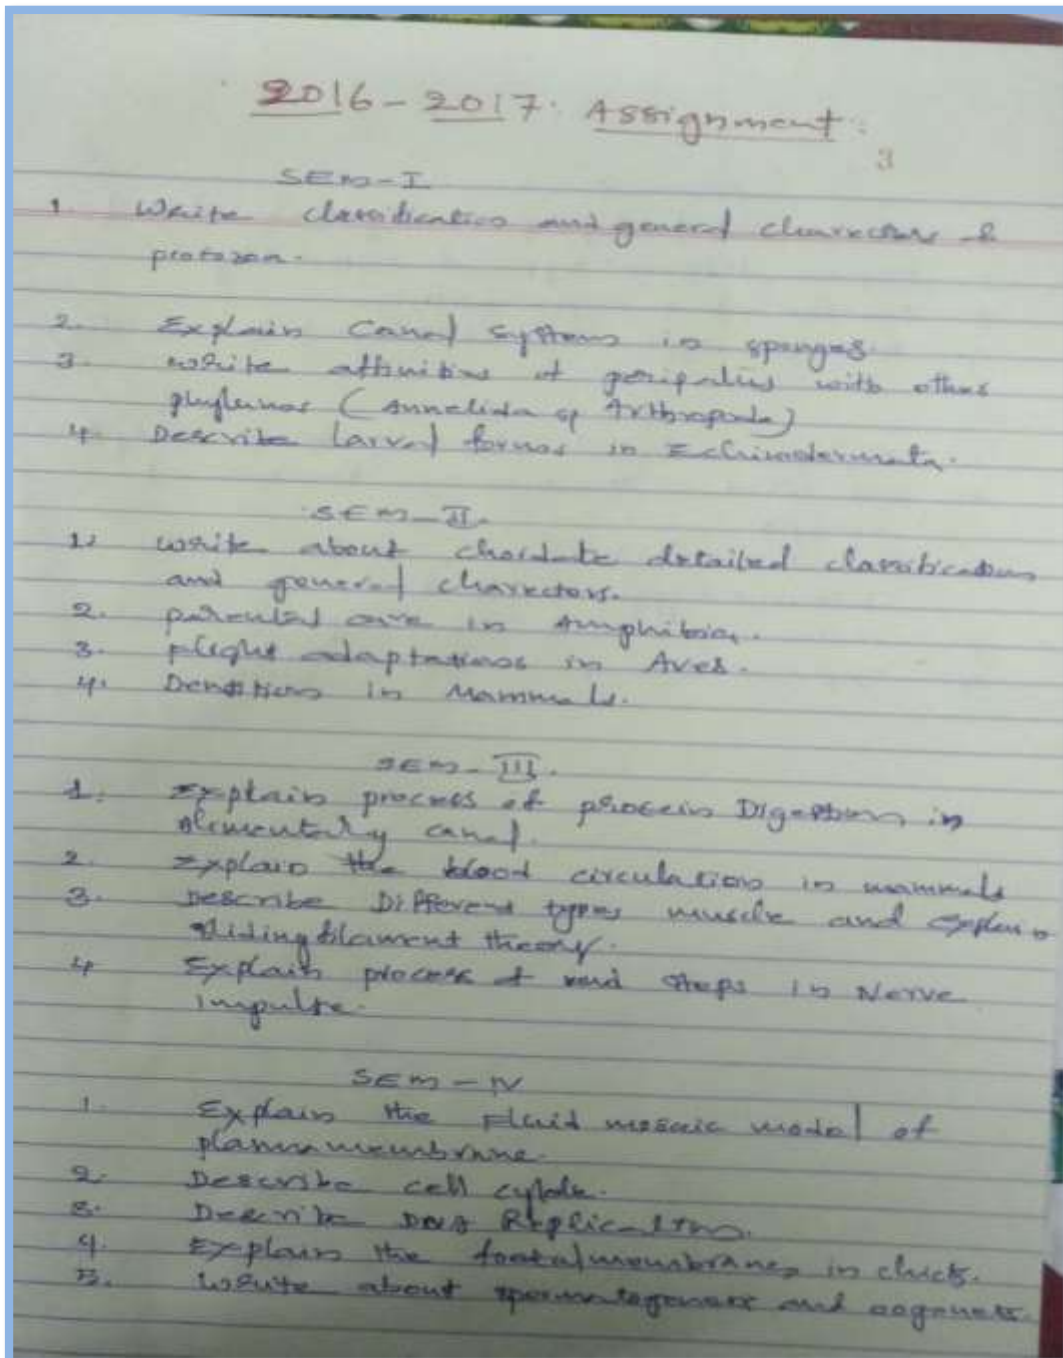 2016-2017. Assignment:
3
SEM-I
1. Write classification and general charecters of
protozoa.
2. Explain Canal system in sponges.
3. write affinities of peripatus with other
phylums (Annelida & Arthropoda)
4. Describe larval forms in Echinodermata.
SEM-II.
1. write about chordate detailed classification
and general charectors.
2. parental care in Amphibia.
3. flight adaptations in Aves.
4. Dentition in Mammals.
SEM-III.
1. Explain process of protein Digestion in
alimentary canal.
2. Explain the blood circulation in mammals
3. Describe Different types muscle and explain
sliding filament theory.
4 Explain process of steps in Nerve
impulse.
SEM-IV
1. Explain the Fluid mosaic model of
plasmamembrane.
2. Describe cell cycle.
3. Describe DNA Replication.
4. Explain the foetalmembranes in chick.
5. Write about spermatogenesis and oogenesis.